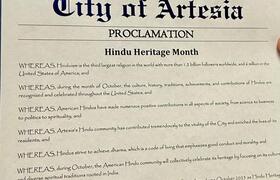 City of Artesia
PROCLAMATION
Hindu Heritage Month
WHEREAS, Hinduism is the third largest religion in the world with more than 1.2 billion followers worldwide, and 4 million in the
United States of America; and
WHEREAS, during the month of October, the culture, history, traditions, achievements, and contributions of Hindus are
recognized and celebrated throughout the United States of America; and
WHEREAS, American Hindus have made numerous positive contributions in all aspects of society, from science to business
to politics to spirituality; and
WHEREAS, Artesia's Hindu community has contributed tremendously to the vitality of the City and enriched the lives of its
residents, and
WHEREAS, Hindus strive to achieve dharma, which is a code of living that emphasizes good conduct and morality; and
WHEREAS, during October, the American Hindu community will collectively celebrate its heritage by focusing on its culture
and diverse spiritual traditions rooted in India.
October 2023 as Hindu Heritage